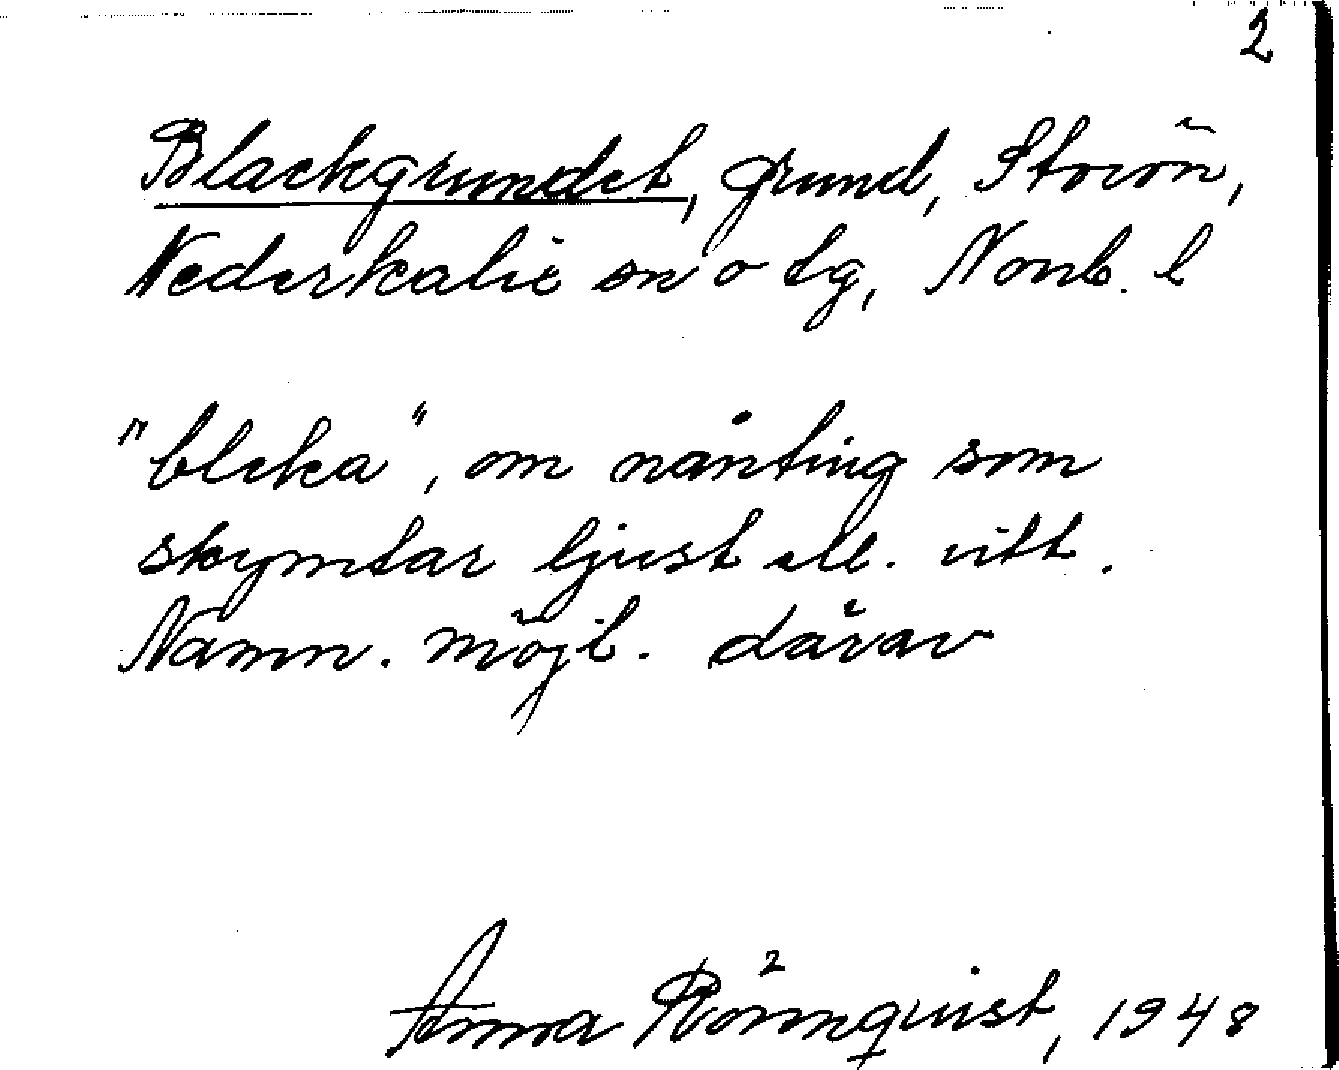 2
Blackgrundet, grund, Storön,
Nederkalix sn o tg, Norrb. l
"bleka", om nånting som
skymtar ljust ell. vitt.
Namn. möjl. därav
Anna Römquist, 1948